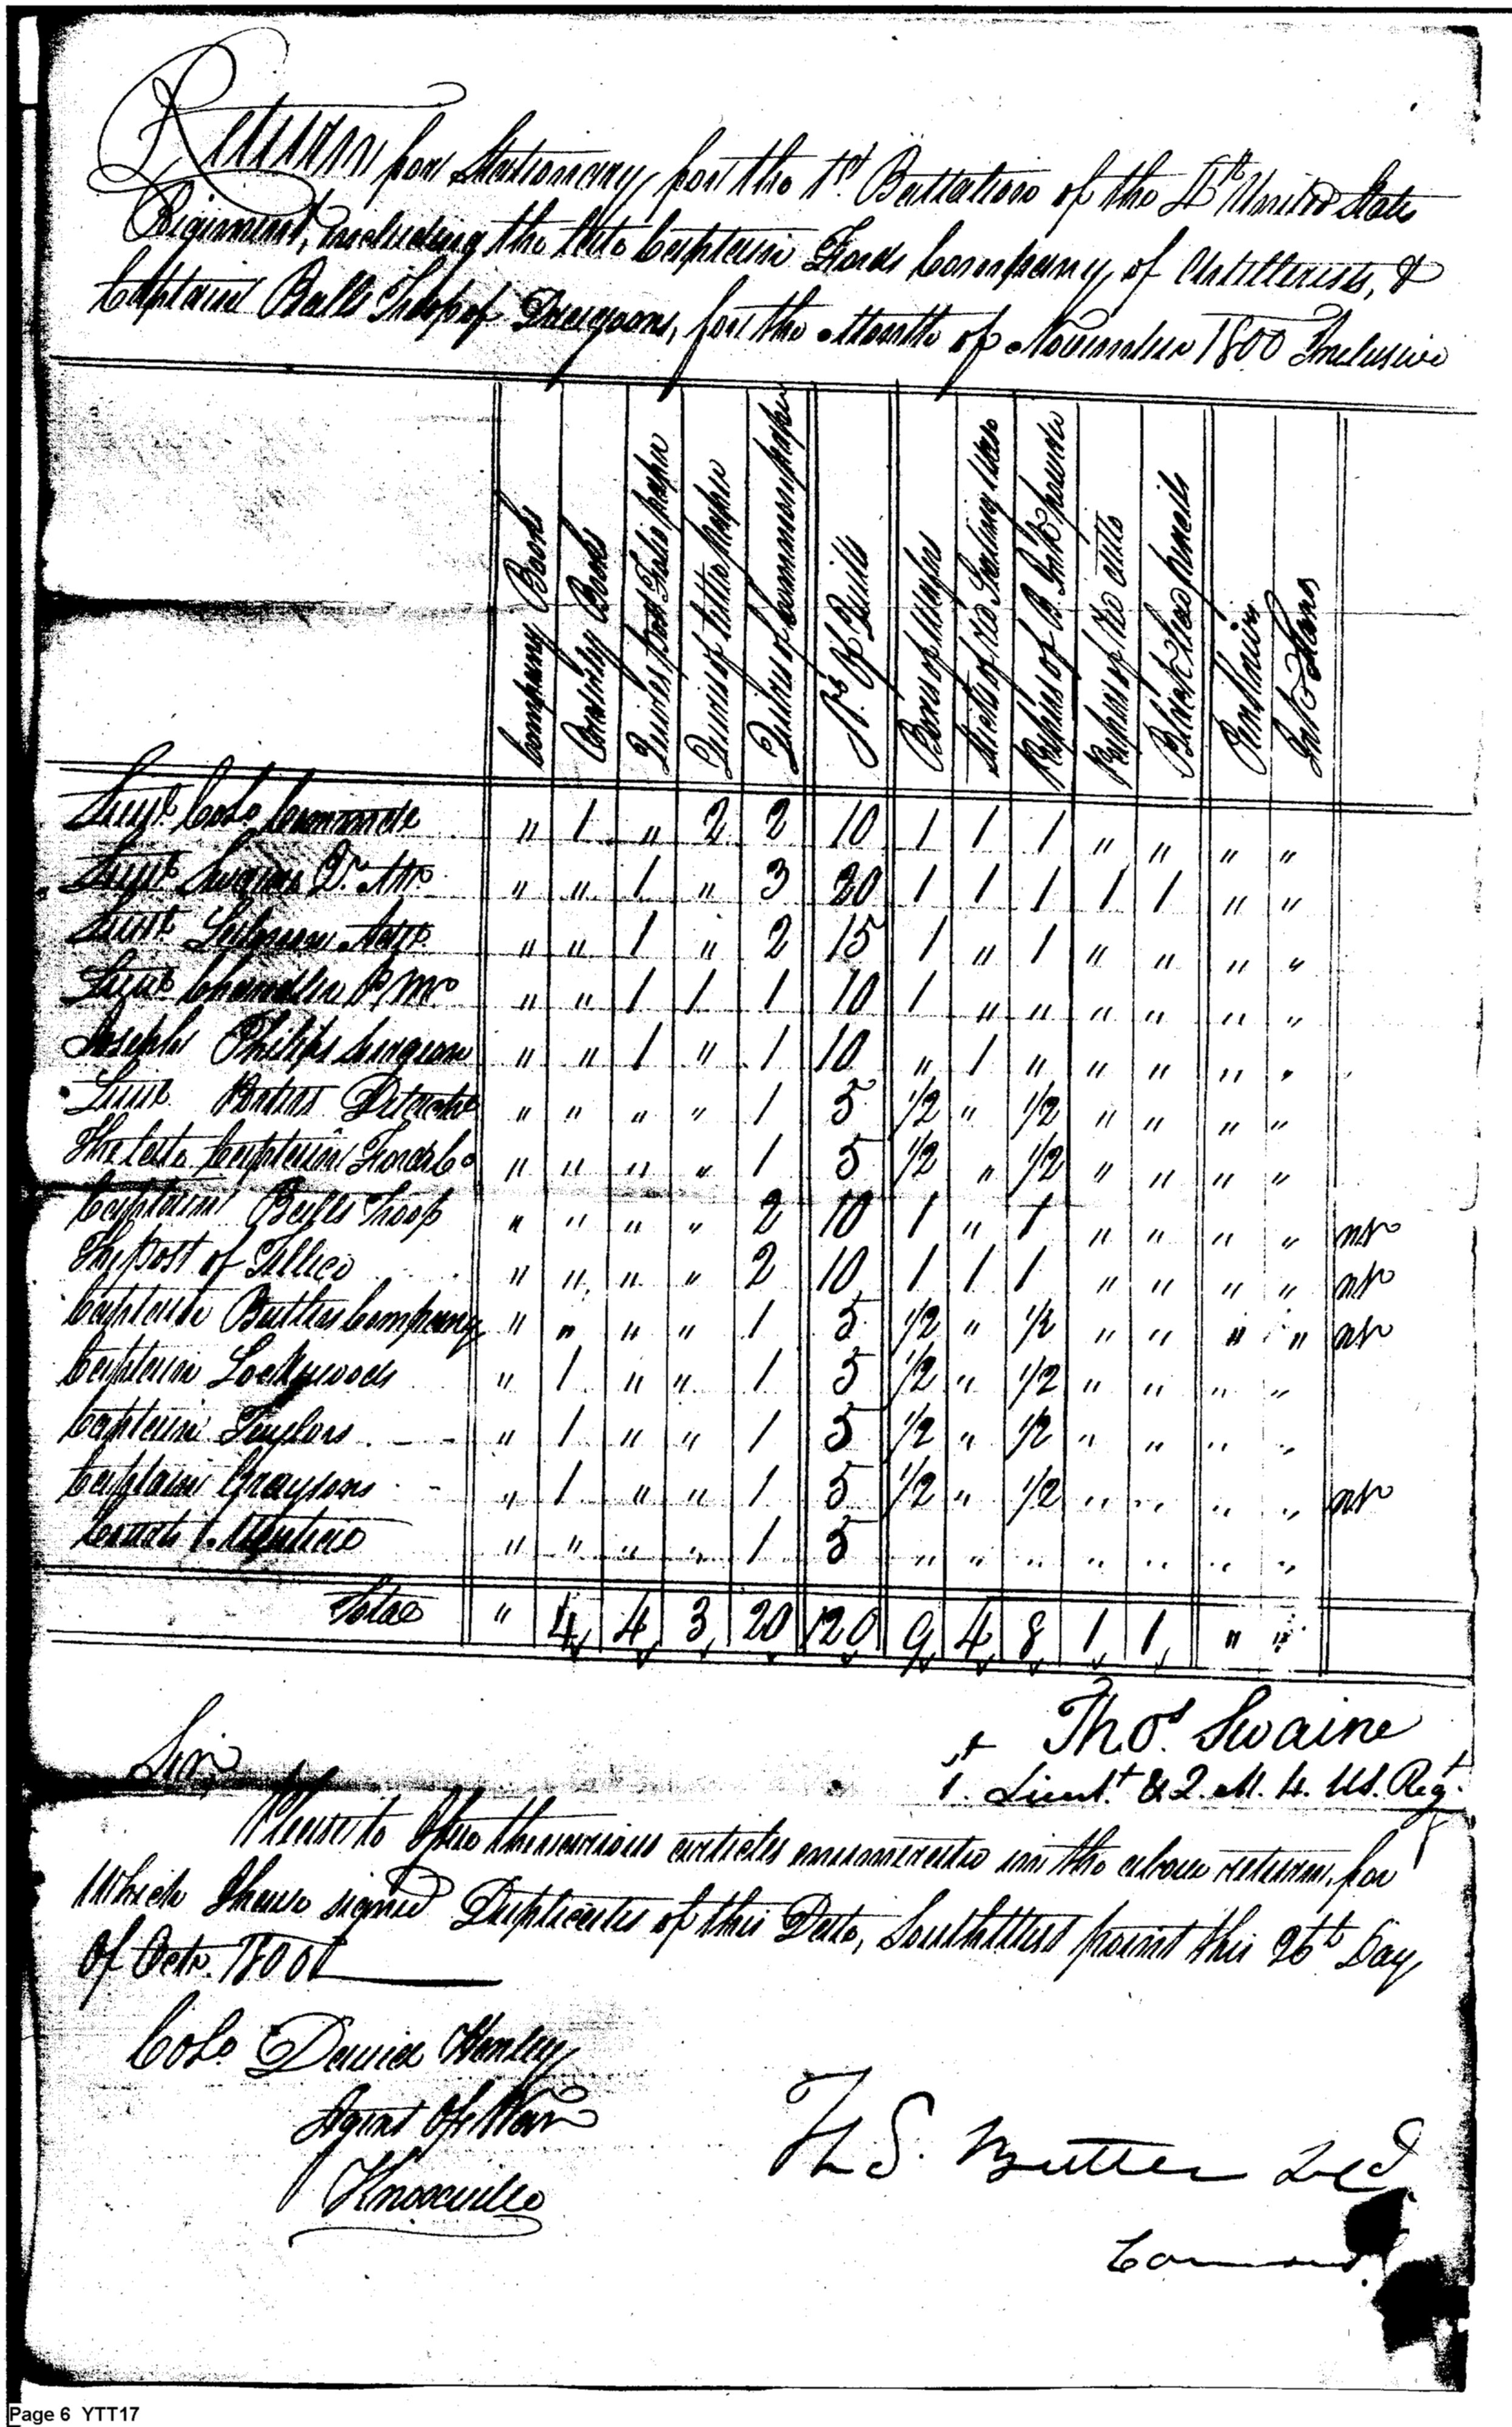 Return for Stationary for the 1st Battalion of the 4th United States
Regiment, including the late Captain Fords Company of Artillerists, &
Captain Balls Troop of Dragoons, for the Month of November 1800 Inclusive
Company Books
Orderly Books
Quires Post Folio paper
Quires of letter paper
Quires of Common paper
No. of Quills
Boxes of Wafers
Sticks of Red Sealing Wax
Papers of B. Ink powder
Papers of Red ditto
Black Lead pencils
Penknives
Ink Stans
Lieut. Colo. Commandt " 1 " 2 2 10 1 1 1 " " " "
Lieut. Swaine Qr. Mr. " " 1 " 3 20 1 1 1 1 1 " "
Lieut. Salmon Adjt. " " 1 " 2 15 1 " 1 " " " "
Lieut. Chandler P. Mr. " " 1 1 1 10 1 " " " " " "
Joseph Philips Surgeon " " 1 " 1 10 " 1 " " " " "
Lieut. Detachd " " " " 1 5 1/2 " 1/2 " " " "
The late Captain Fords Co " " " " 1 5 1/2 " 1/2 " " " "
Captain Balls Troop " " " " 2 10 1 " 1 " " " "
The post of Tellico " " " " 2 10 1 1 1 " " " "
Captain Butlers Company " " " " 1 5 1/2 " 1/2 " " " "
Captain Lockwoods " 1 " " 1 5 1/2 " 1/2 " " " "
Captain Taylors " 1 " " 1 5 1/2 " 1/2 " " " "
Captain Graysons " 1 " " 1 5 1/2 " 1/2 " " " "
" " " " 1 5 " " " " " " "
Total " 4 4 3 20 120 9 4 8 1 1 " "
Thos. Swaine
1st Lieut. & Q. M. 4. US. Regt.
Sir
Please to Issue the various articles enumerated in the above return, for
Which I have signed Duplicates of this Date, South West point this 26th Day
Of Octr. 1800
Colo. David Henley
Agent Of War
Knoxville
Th S. Butler
Page 6 YTT17